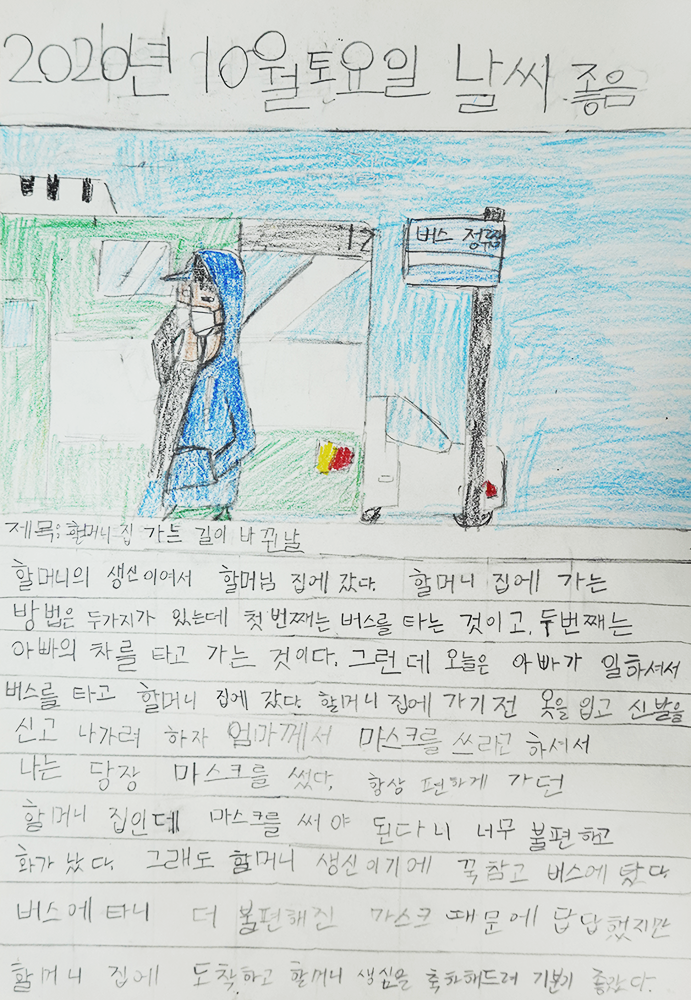 2020년 10월 토요일 날씨 좋음
17
버스 정류장
제목: 할머니 집 가는 길이 바뀐날
할머니의 생신이여서 할머님 집에 갔다. 할머니 집에 가는
방법은 두가지가 있는데 첫 번째는 버스를 타는 것이고, 두번째는
아빠의 차를 타고 가는 것이다. 그런데 오늘은 아빠가 일하셔서
버스를 타고 할머니 집에 갔다. 할머니 집에 가기전 옷을 입고 신발을
신고 나가려 하자 엄마께서 마스크를 쓰라고 하셔서
나는 당장 마스크를 썼다. 항상 편하게 가던
할머니 집인데 마스크를 써야 된다니 너무 불편하고
화가 났다. 그래도 할머니 생신이기에 꾹참고 버스에 탔다.
버스에 타니 더 불편해진 마스크 때문에 답답했지만
할머니 집에 도착하고 할머니 생심을 축하해드려 기분이 좋았다.